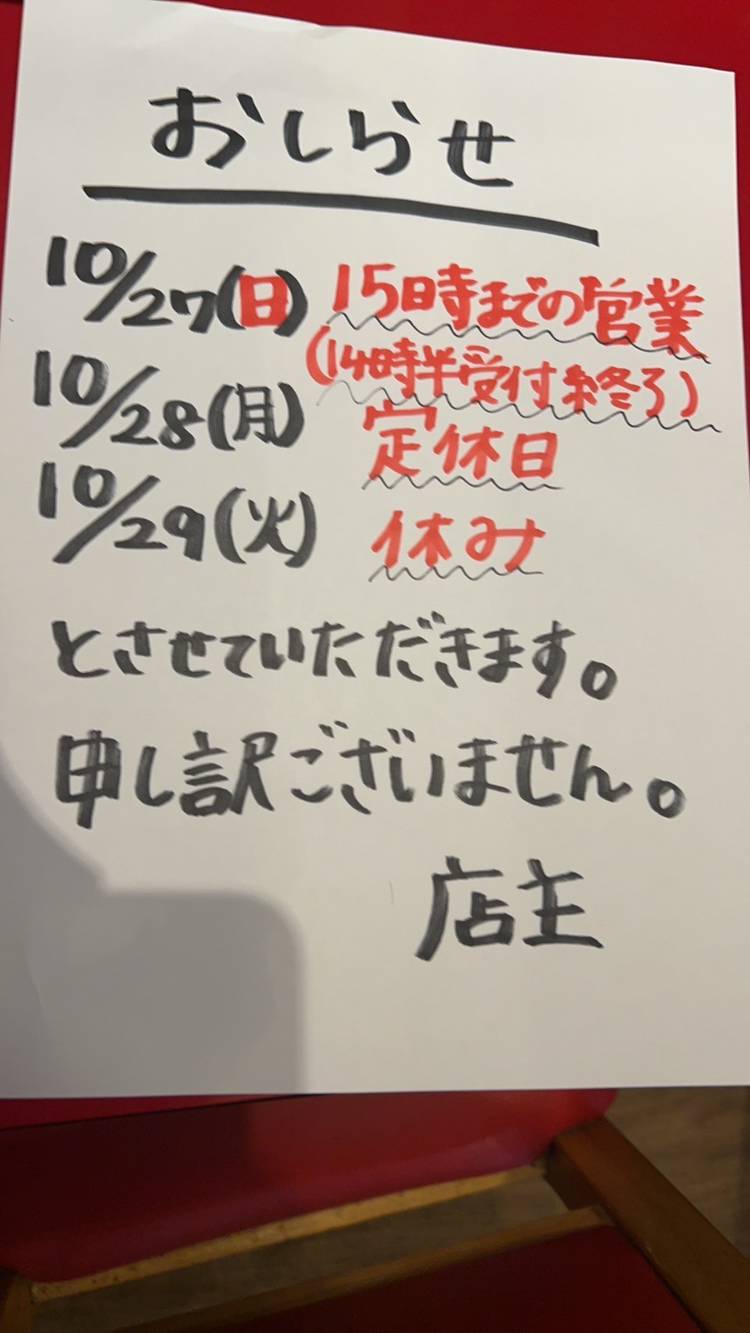 おしらせ
10/27(日) 15時までの営業
(14時半受付終了)
10/28(月) 定休日
10/29(火) 休み
とさせていただきます。
申し訳ございません。
店主